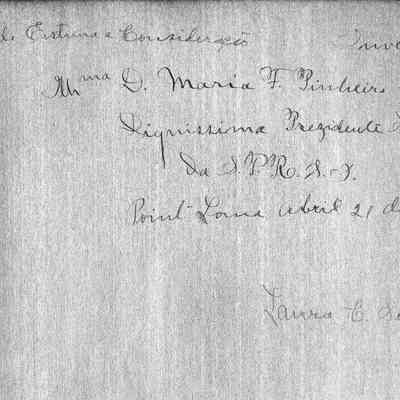 Estima e Consideração
Illma D. Maria F. Pinheiro
Dignissima Prezidente
da S.P.R.S.I.
Point Loma Abril 21 de
Laura E.